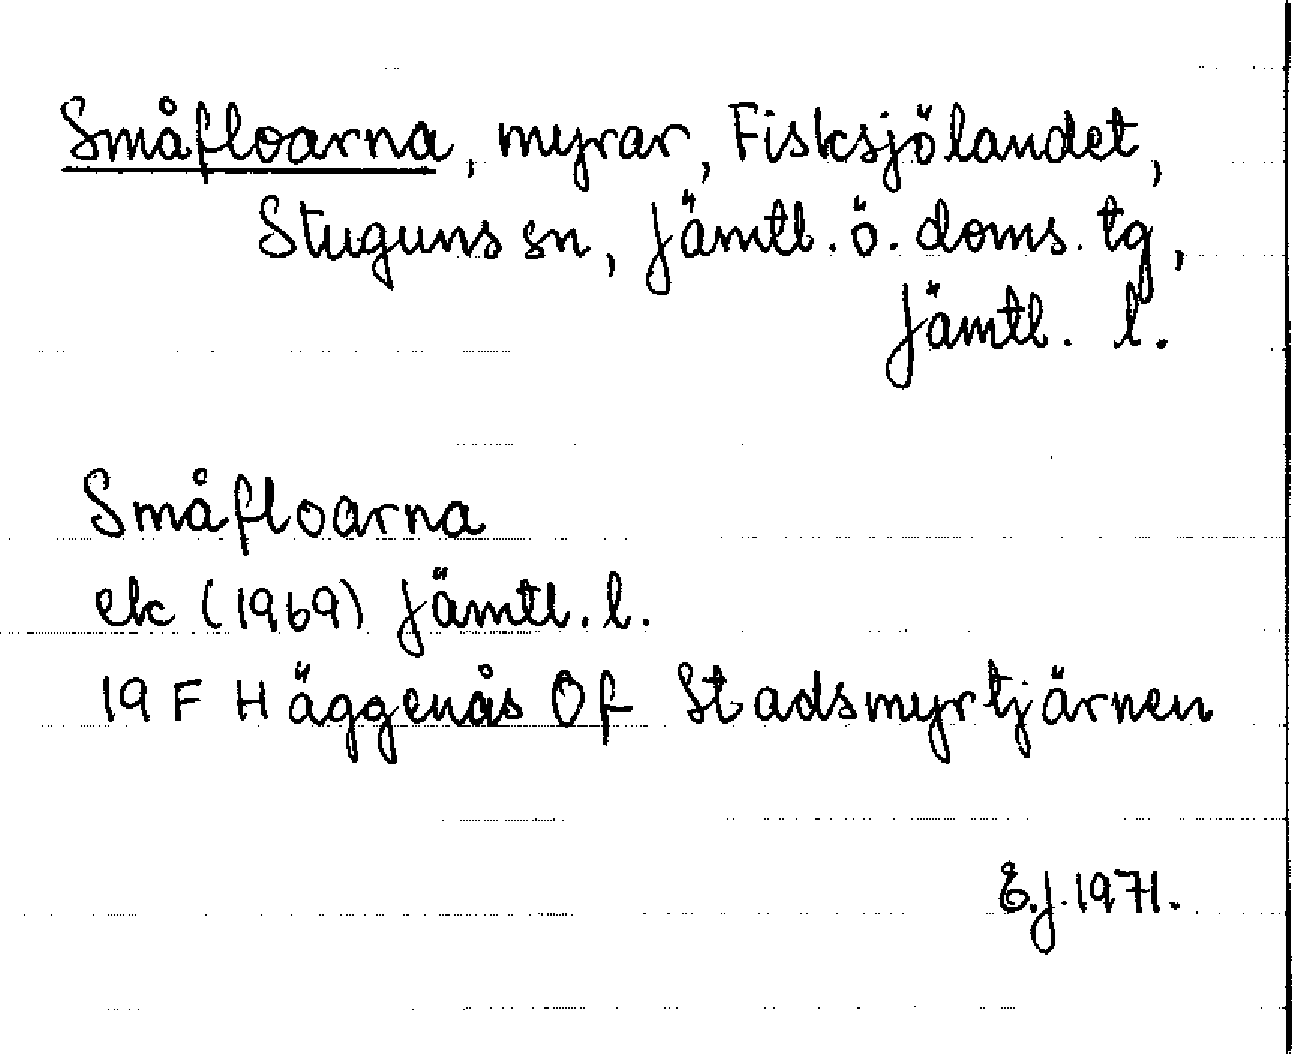 Småfloarna, myrar, Fisksjölandet,
Stuguns sn, Jämtl. ö. doms. tg,
Jämtl. l.
Småfloarna
ek (1969) Jämtl. l.
19 F Häggenås 0 f Stadsmyrtjärnen
E.J. 1971.